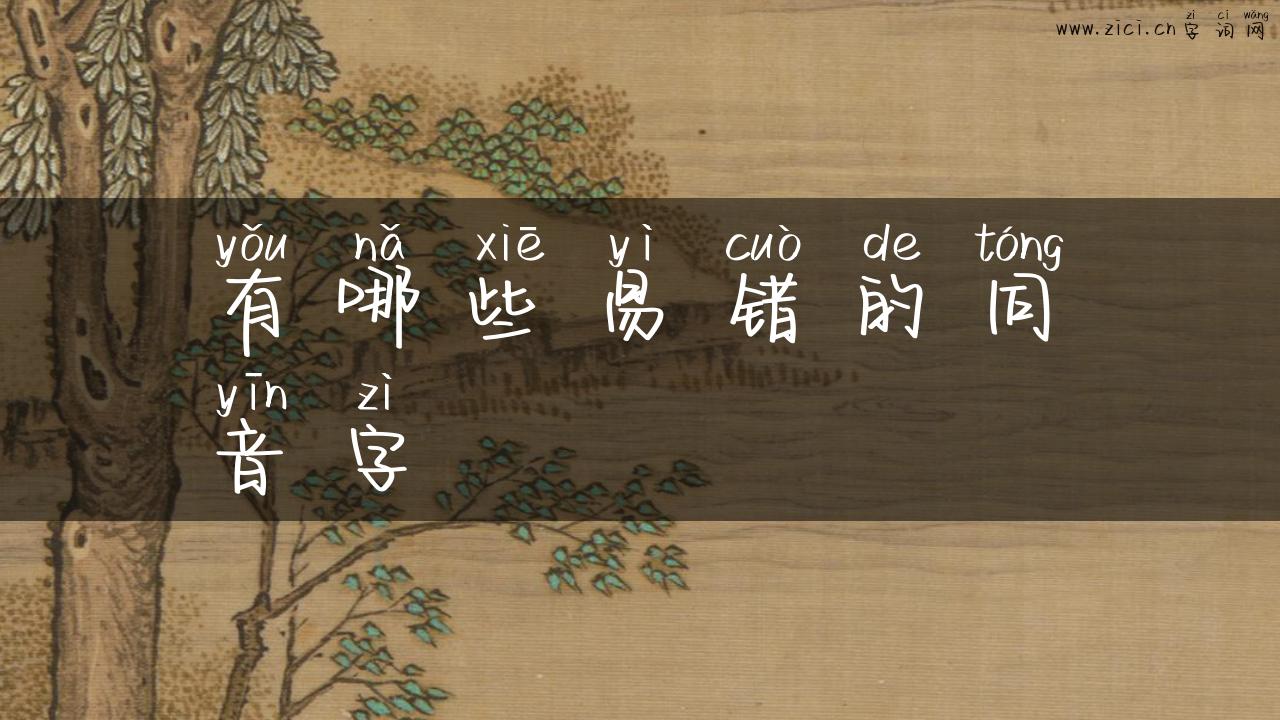 zì cí wǎng
www.zici.cn 字词网
yǒu nǎ xiē yì cuò de tóng
有哪些易错的同
yīn zì
音字